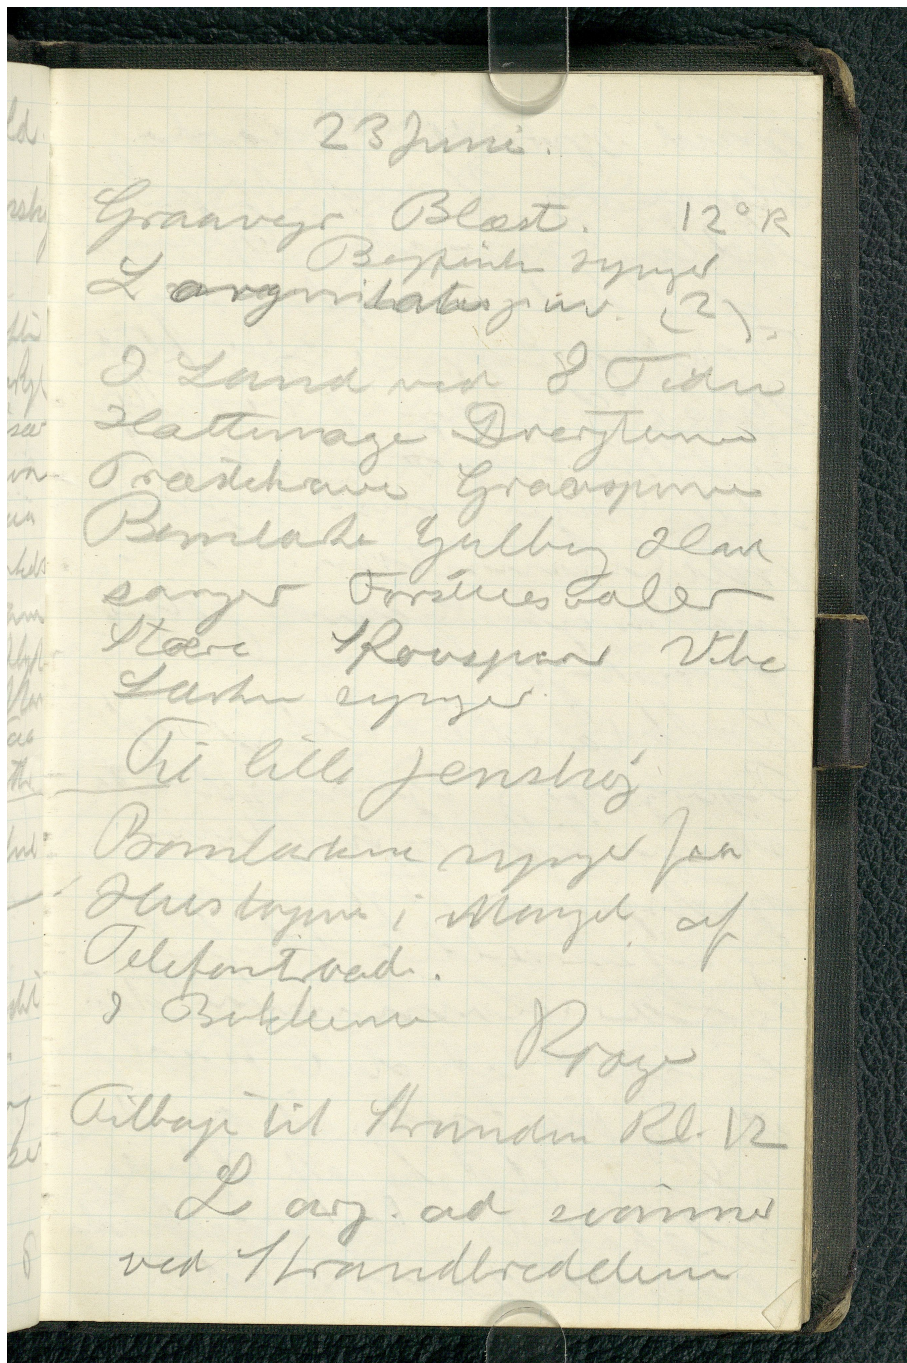 23 Juni.
Graaveyr Blæst. 12° R
synger
L argentatus juv. (2).
I Land ved 8 Tiden
Hættemaage Dværgterne
Træskkrave Graaspurve
Bomlærke Gulbug Hav
sanger Forstuesvaler
Stære Skovspurv Vibe
Lærker synger
Til lille Jenshøj
Bomlærkerne synger fra
Hustagene i Mangel af
Telefontraad.
I Bakkerne
Krage
Tilbage til Stranden Kl. 12
L arg. ad svømmer
ved Strandbreddernes